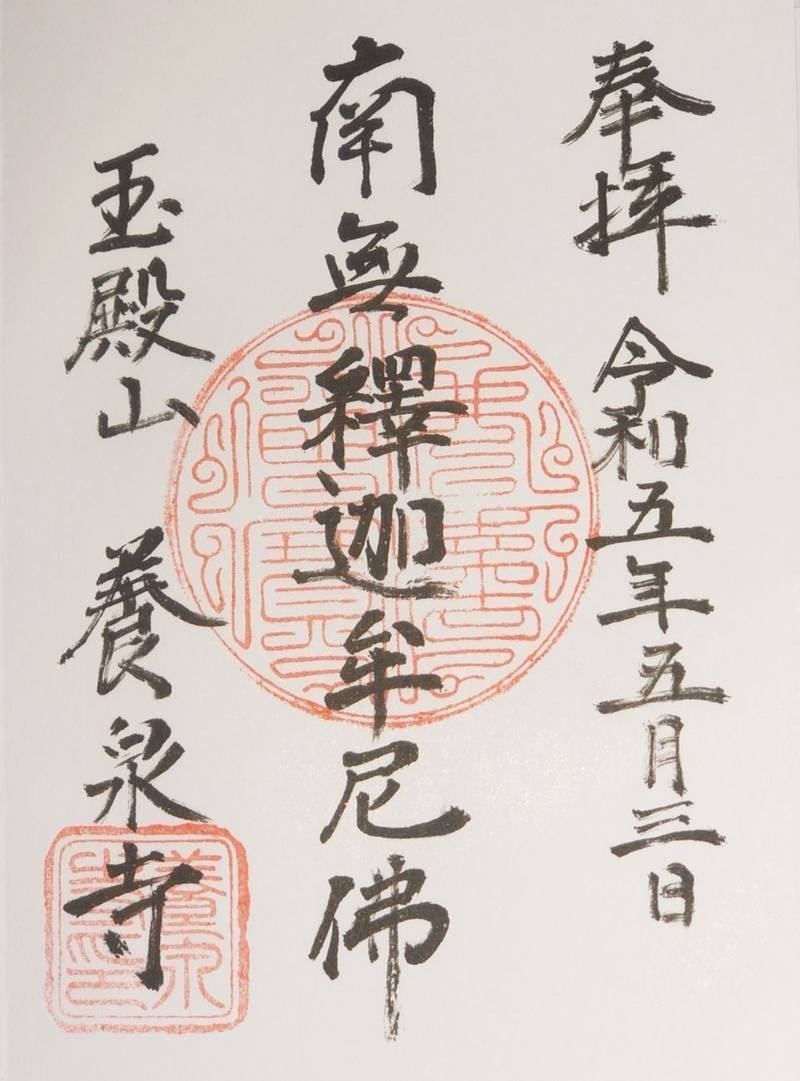 奉拝 令和五年五月三日
南無釋迦牟尼佛
玉殿山 養泉寺